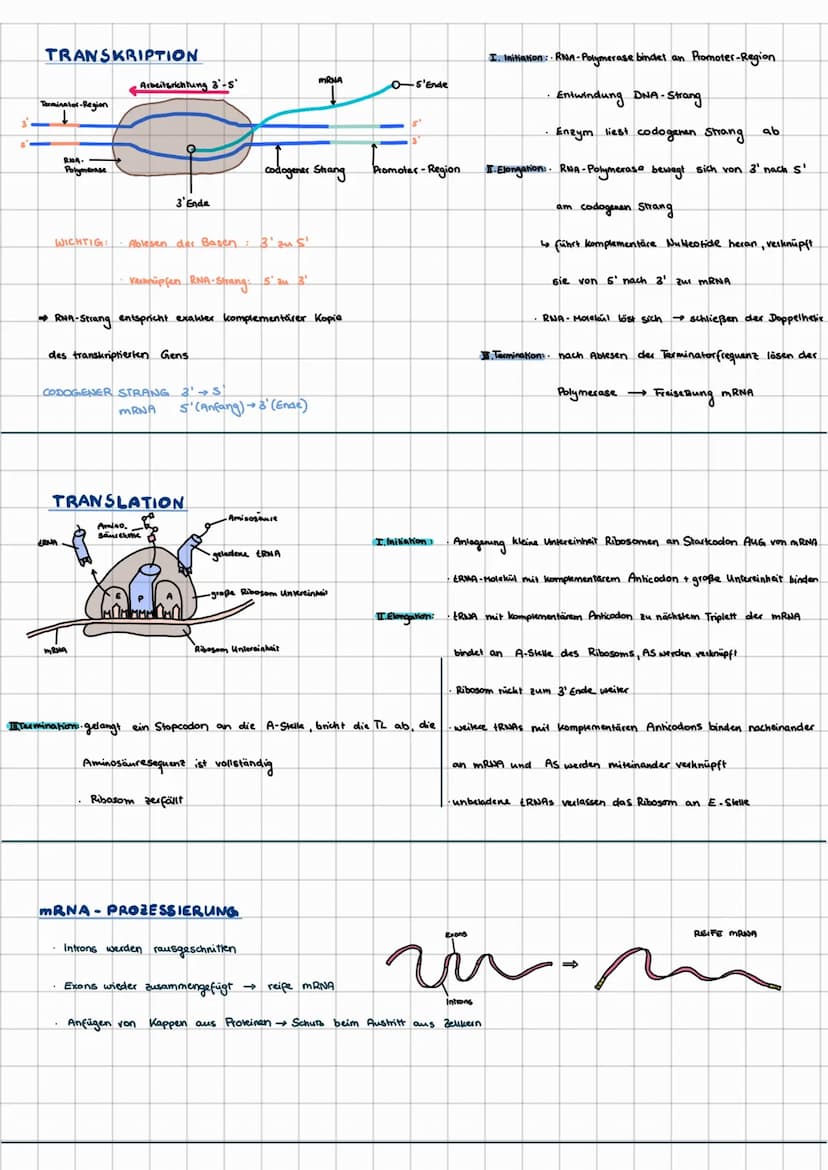 TRANSKRIPTION
Arbeitsrichtung 3'-5'
mRNA
5'Ende
Terminator-Region
3'
5'
5'
3'
RNA-
Polymerase
codogener Strang
Promoter-Region
3'Ende
WICHTIG: · Ablesen der Basen : 3' zu 5'
· Verknüpfen RNA-Strang: 5' zu 3'
→ RNA-Strang entspricht exakter komplementärer Kopie
des transkriptierten Gens
CODOGENER STRANG 3' → 5'
mRNA 5'(Anfang) → 3'(Ende)
I. Initiation: · RNA-Polymerase bindet an Promoter-Region
· Entwindung DNA-Strang
· Enzym liest codogenen Strang ab
II. Elongation: · RNA-Polymerase bewegt sich von 3' nach 5'
am codogenen Strang
↳ führt komplementäre Nukleotide heran, verknüpft
sie von 5' nach 3' zur mRNA
· RNA-Molekül löst sich → schließen der Doppelhelix
III. Termination: · nach Ablesen der Terminatorfrequenz lösen der
Polymerase → Freisetzung mRNA
TRANSLATION
Amino-
säurekette
Aminosäure
tRNA
geladene tRNA
große Ribosom Untereinheit
E P A
mRNA
Ribosom Untereinheit
I. Initiation: · Anlagerung kleine Untereinheit Ribosomen an Startcodon AUG von mRNA
· tRNA-Molekül mit komplementärem Anticodon + große Untereinheit binden
II. Elongation: · tRNA mit komplementärem Anticodon zu nächstem Triplett der mRNA
bindet an A-Stelle des Ribosoms, AS werden verknüpft
· Ribosom rückt zum 3'Ende weiter
· weitere tRNAs mit komplementären Anticodons binden nacheinander
an mRNA und AS werden miteinander verknüpft
· unbeladene tRNAs verlassen das Ribosom an E-Stelle
III Termination: · gelangt ein Stopcodon an die A-Stelle, bricht die TL ab, die
Aminosäuresequenz ist vollständig
· Ribosom zerfällt
mRNA - PROZESSIERUNG
· Introns werden rausgeschnitten
· Exons wieder zusammengefügt → reife mRNA
· Anfügen von Kappen aus Proteinen → Schutz beim Austritt aus Zellkern
Exons
Introns
⇒
REIFE mRNA